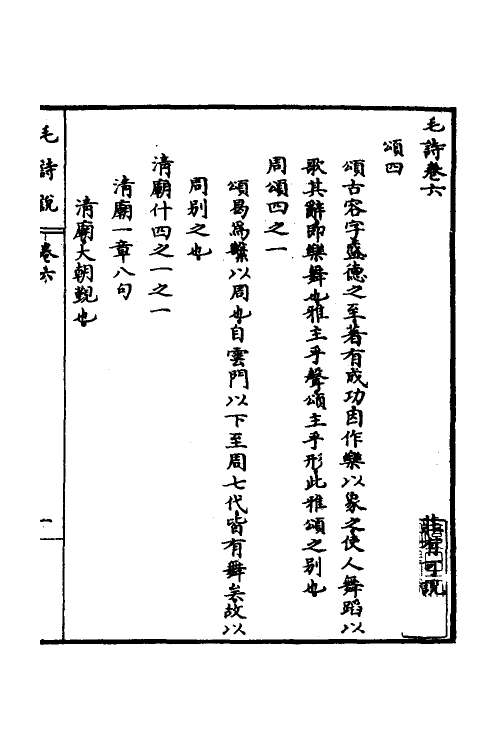 毛詩卷六
莊有可說
頌四
頌古容字盛德之至著有成功因作樂以象之使人舞蹈以
歌其辭即樂舞也雅主乎聲頌主乎形此雅頌之別也
周頌四之一
頌曷爲繫以周也自雲門以下至周七代皆有舞矣故以
周別之也
清廟什四之一之一
清廟一章八句
清廟大朝覲也
毛詩說
卷六
一